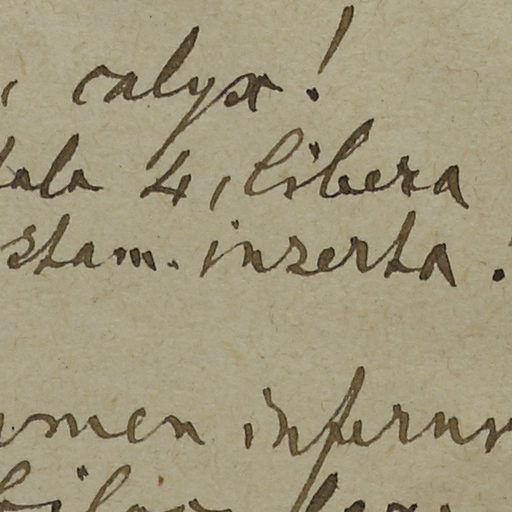 , calyx!
tala 4, libera
stam. inserta.
men infernu